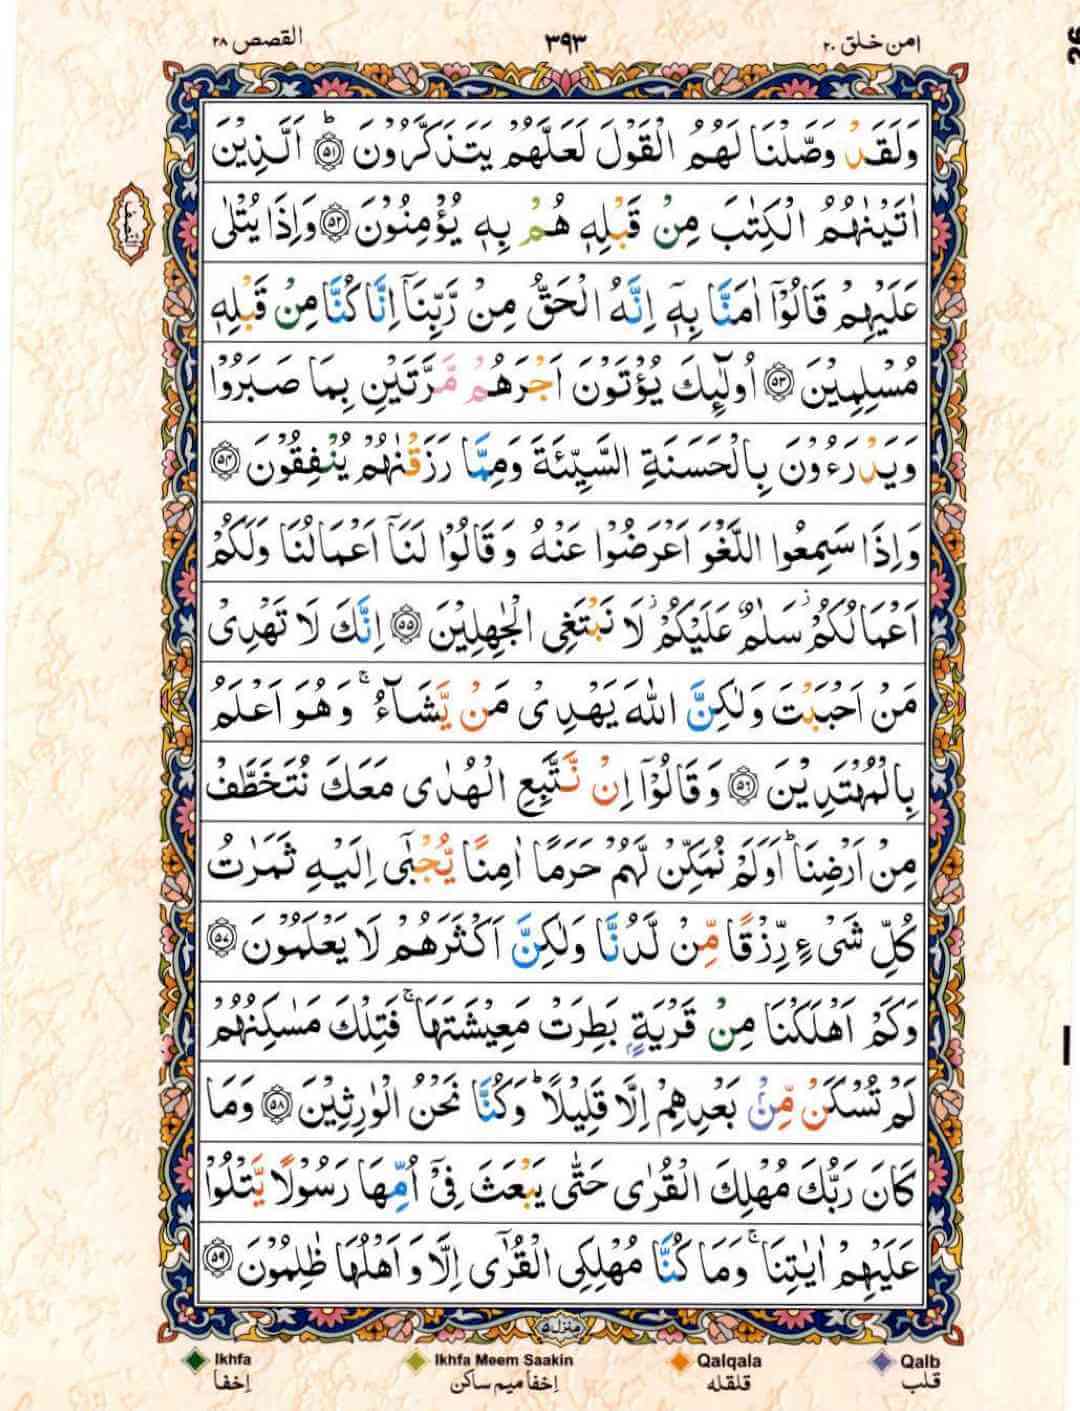 امن خلق ٢٠ ٣٩٣ القصص ٢٨
وَلَقَدۡ وَصَّلۡنَا لَهُمُ الۡقَوۡلَ لَعَلَّهُمۡ يَتَذَكَّرُوۡنَ ؕ‏ ﴿۵۱﴾ اَلَّذِيۡنَ
اٰتَيۡنٰهُمُ الۡـكِتٰبَ مِنۡ قَبۡلِهٖ هُمۡ بِهٖ يُؤۡمِنُوۡنَ ﴿۵۲﴾ وَاِذَا يُتۡلٰى
عَلَيۡهِمۡ قَالُوۡۤا اٰمَنَّا بِهٖۤ اِنَّهُ الۡحَـقُّ مِنۡ رَّبِّنَاۤ اِنَّا كُنَّا مِنۡ قَبۡلِهٖ
مُسۡلِمِيۡنَ ﴿۵۳﴾ اُولٰٓٮِٕكَ يُؤۡتَوۡنَ اَجۡرَهُمۡ مَّرَّتَيۡنِ بِمَا صَبَرُوۡا
وَيَدۡرَءُوۡنَ بِالۡحَسَنَةِ السَّيِّئَةَ وَمِمَّا رَزَقۡنٰهُمۡ يُنۡفِقُوۡنَ ﴿۵۴﴾
وَاِذَا سَمِعُوا اللَّغۡوَ اَعۡرَضُوۡا عَنۡهُ وَقَالُوۡا لَنَاۤ اَعۡمَالُنَا وَلَـكُمۡ
اَعۡمَالُـكُمۡ سَلٰمٌ عَلَيۡكُمۡ لَا نَبۡتَغِى الۡجٰهِلِيۡنَ ﴿۵۵﴾ اِنَّكَ لَا تَهۡدِىۡ
مَنۡ اَحۡبَبۡتَ وَلٰـكِنَّ اللّٰهَ يَهۡدِىۡ مَنۡ يَّشَآءُ ۚ وَهُوَ اَعۡلَمُ
بِالۡمُهۡتَدِيۡنَ ﴿۵۶﴾ وَقَالُوۡۤا اِنۡ نَّـتَّبِعِ الۡهُدٰى مَعَكَ نُـتَخَطَّفۡ
مِنۡ اَرۡضِنَا ؕ اَوَلَمۡ نُمَكِّنۡ لَّهُمۡ حَرَمًا اٰمِنًا يُّجۡبٰٓى اِلَيۡهِ ثَمَرٰتُ
كُلِّ شَىۡءٍ رِّزۡقًا مِّنۡ لَّدُنَّا وَلٰـكِنَّ اَكۡثَرَهُمۡ لَا يَعۡلَمُوۡنَ ﴿۵۷﴾
وَكَمۡ اَهۡلَـكۡنَا مِنۡ قَرۡيَةٍۢ بَطِرَتۡ مَعِيۡشَتَهَا ۚ فَتِلۡكَ مَسٰكِنُهُمۡ
لَمۡ تُسۡكَنۡ مِّنۡۢ بَعۡدِهِمۡ اِلَّا قَلِيۡلًا ؕ وَكُنَّا نَحۡنُ الۡوٰرِثِيۡنَ ﴿۵۸﴾ وَمَا
كَانَ رَبُّكَ مُهۡلِكَ الۡقُرٰى حَتّٰى يَبۡعَثَ فِىۡۤ اُمِّهَا رَسُوۡلًا يَّتۡلُوۡا
عَلَيۡهِمۡ اٰيٰتِنَا ۚ وَمَا كُنَّا مُهۡلِكِى الۡقُرٰٓى اِلَّا وَاَهۡلُهَا ظٰلِمُوۡنَ ﴿۵۹﴾
منزل ۵
Ikhfa Ikhfa Meem Saakin Qalqala Qalb
اِخفا اِخفا میم ساکن قلقله قلب